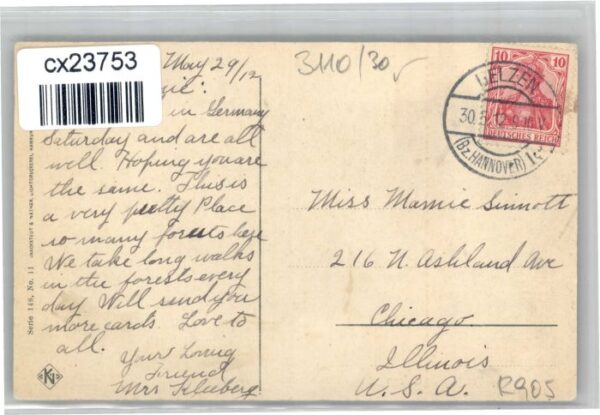 cx23753
May 29/12
in Germany
Saturday and are all
well. Hoping you are
the same. This is
a very pretty Place
so many forests here
We take long walks
in the forests every
day Will send you
more cards. Love to
all.
Your Loving
Friend
Mrs
3110/30
10 10
UELZEN
30.5.12.9-10.V.
DEUTSCHES REICH
(Bz. HANNOVER) 1
Miss Mamie Sinnott
216 N. Ashland Ave
Chicago
Illinois
U.S.A.
R905
Serie 146, No. 11
KN